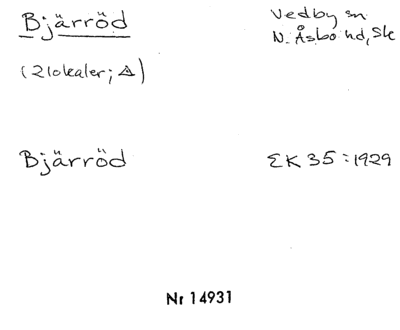 Bjärröd
Vedby sn
N. Åsbo hd, Sk
(2 lokaler; △)
Bjärröd
EK 35:1929
Nr 14931